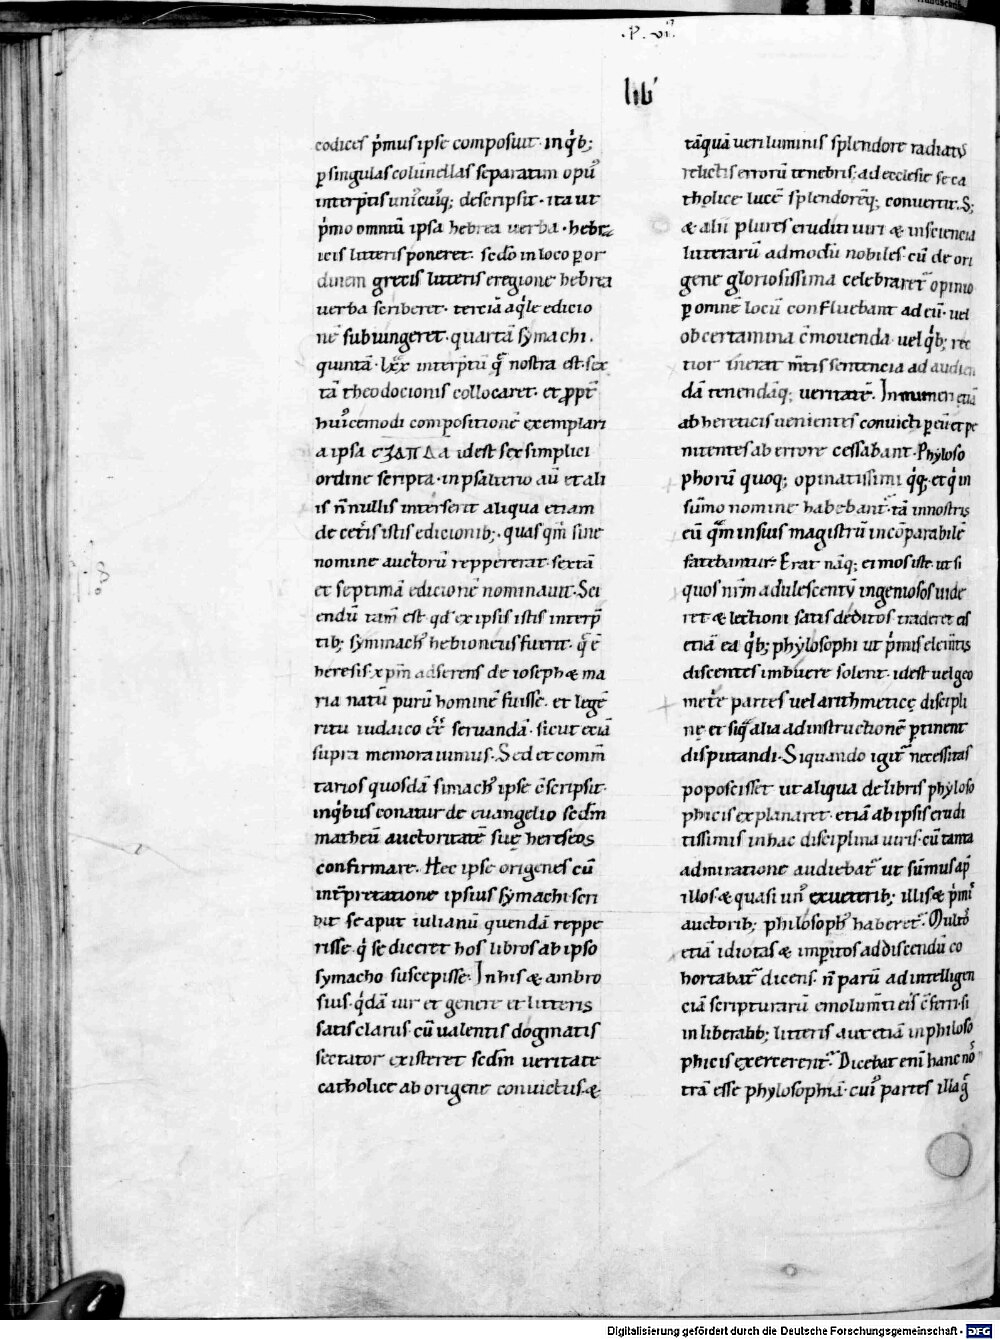 .P. vi.
lib'
codices p̄mus ipse composuit· in qͥb;
ꝑ singulas colūnellas separatim opu᾽
int̄p̄tis uniᵒcuiq; descripsit· ita ut
p̄mo omniū ipsa hebrea uerba· hebr
icis litteris poneret· sedō in loco ꝑ or
dinem grecis litteris e regione hebrea
uerba scriberet· terciā aqͥle edicio
nē subiungeret· quartā sẏmachi.
quintā· lxx interp̄tū q̄ nostra est· sex
tā theodocionis collocaret· et ꝓpt̄
hui᾽cemodi compositionē exemplari
a ipsa idest sex simplici
ordine scripta· in psalterio aū et ali
is n̄nullis inserit aliqua etiam
de cet̄is istis edicionib;· quas qm̄ sine
nomine auctorū reppererat· sextā
et septimā edicionē nominauit· Sci
endū tam̄ est· qd̄ ex ipsis istis interp̄
tib; sẏmmach᾽ hebioneus fuerit· q̄ ē
heresis xp̄m adserens de ioseph æ ma
ria natū purū hominē fuisse· et legē
ritu iudaico eē seruandā· sicut etiā
supra memorauimus· Sed et comm̄
tarios quosdā simach᾽ ipse c̄scripsit·
in qͥbus conatur de euangelio sedm̄
matheū auctoritatē suę hereseos
confirmare. Hec ipse origenes cū
int̄pretatione ipsius sẏmachi scri
bit se aput iulianū quendā reppe
risse· q̄ se diceret hos libros ab ipso
sẏmacho suscepisse· In his æ ambro
sius· qͥdā uir et genere et litteris
satis clarus· cū ualentis dogmatis
sectator existeret sedm̄ ueritate
catholice ab origene conuictus· æ
tāquā ueri luminis splendore radiatus
relictis errorū tenebris; ad ecclesie se ca
tholice lucē splendorēq; conuertit· S;
æ alii plures eruditi uiri æ in sciencia
litterarū admodū nobiles· cū de ori
gene gloriosissima celebraret᾽ opinio
ꝑ omnē locū confluebant ad eū· uel
ob certamina c̄mouenda uel qͥb; rec
tior inerat m̄tis sentencia ad audien
dā tenendāq; ueritatē. In numeri etiā
ab hereticis uenientes conuicti ꝑ eū et pe
nitentes ab errore cessabant· Phẏloso
phorū quoq; opinatissimi qͥq; et qͥ in
sūmo nomine habebant᾽· tā in nostris
eū qᷓm in suis magistrū incōparabilē
fatebantur· Erat nāq; ei mos iste· ut si
quos nr̄m adulescentū ingeniosos uide
ret æ lectioni satis deditos traderet eis
etiā ea qͥb; phẏlosophi ut p̄mis elem̄tis
discentes imbuere solent· idest uel geo
metr̄e partes uel arithmeticę discipli
nę et siqᷓ alia ad instructionē ꝑtinent
disputandi· Si quando igit᾽ necessitas
poposcisset ut aliqua de libris phẏloso
phicis explanaret· etiā ab ipsis erudi
tissimis in hac disciplina uiris· cū tanta
admiratione audiebat᾽ ut sūmus ap̄
illos æ quasi un᾽ ex ueterib; illis æ p̄mi᾽
auctorib; philosoph᾽ haberet᾽· Multos
etiā idiotas æ imꝑitos ad discendū co
hortabat᾽ dicens· n̄ parū ad intelligen
ciā scripturarū emolum̄ti eis c̄ferri· si
in liberalib; litteris aut etiā in philoso
phicis exercerent᾽· Dicebat eni hanc nos
trā esse phẏlosophiā· cui᾽ partes illa qᷓ
Digitalisierung gefördert durch die Deutsche Forschungsgemeinschaft - DFG